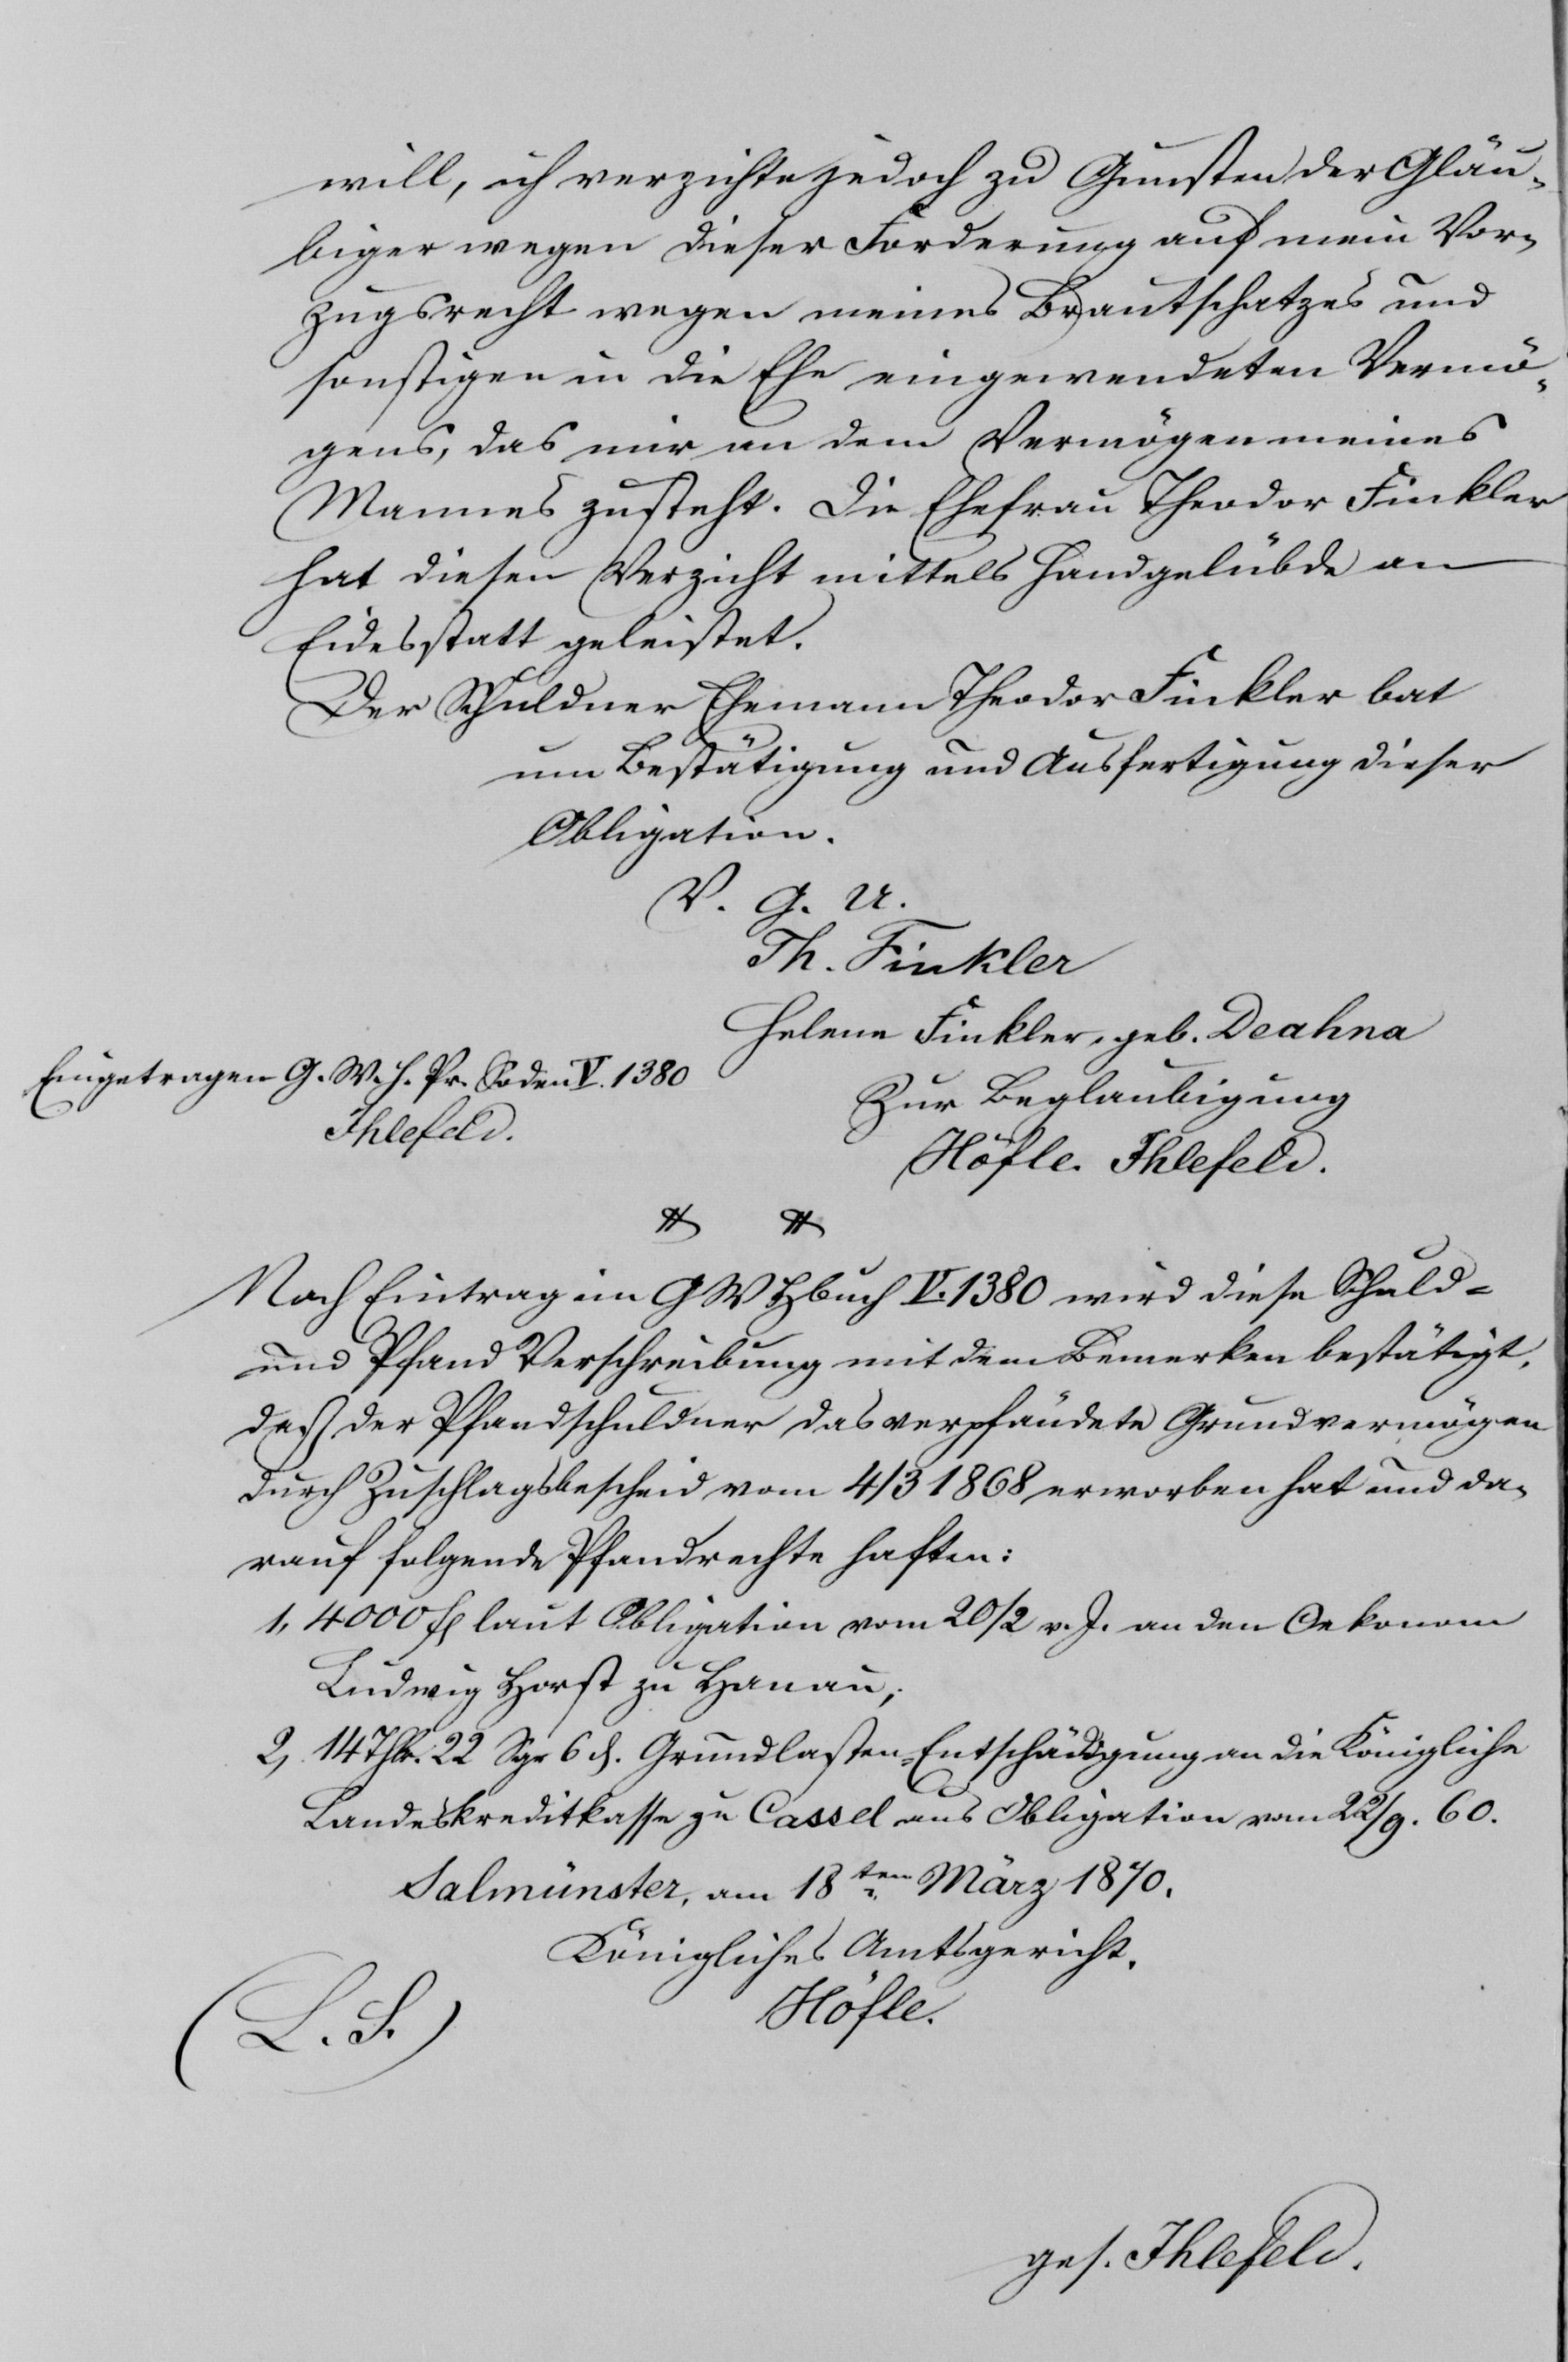 will, ich verzichte jedoch zu Gunsten der Gläu-
biger wegen dieser Forderung auf mein Vor-
zugsrecht wegen meines Brautschatzes und
sonstigen in die Ehe eingewendeten Vermö-
gens, das mir an dem Vermögen meines
Mannes zusteht. Die Ehefrau Theodor Finkler
hat diesen Verzicht mittels Handgelübde an
Eidesstatt geleistet.
Der Schuldner Ehemann Theodor Finkler bat
um Bestätigung und Ausfertigung dieser
Obligation.
V. G. U.
Th. Finkler
Helene Finkler, geb. Deahna
Eingetragen G. W. H. Pr. Soden V. 1380
Ihlefeld.
Zur Beglaubigung
Höfle. Ihlefeld.
Nach Eintrag im G W Hbuch V. 1380 wird diese Schuld-
und Pfand Verschreibung mit dem Bemerken bestätigt,
daß der Pfandschuldner das verpfändete Grundvermögen
durch Zuschlagsbescheid vom 4/3 1868 erworben hat und da-
rauf folgende Pfandrechte haften:
1, 4000 fl laut Obligation vom 20/2 v. J. an den Oekonom
Ludwig Horst zu Hanau;
2, 14 Thlr. 22 Sgr 6 d. Grundlasten-Entschädigung an die Königliche
Landeskreditkasse zu Cassel aus Obligation vom 22/9. 60.
Salmünster, am 18ten März 1870.
Königliches Amtsgericht.
Höfle.
(L. S.)
ges. Ihlefeld.